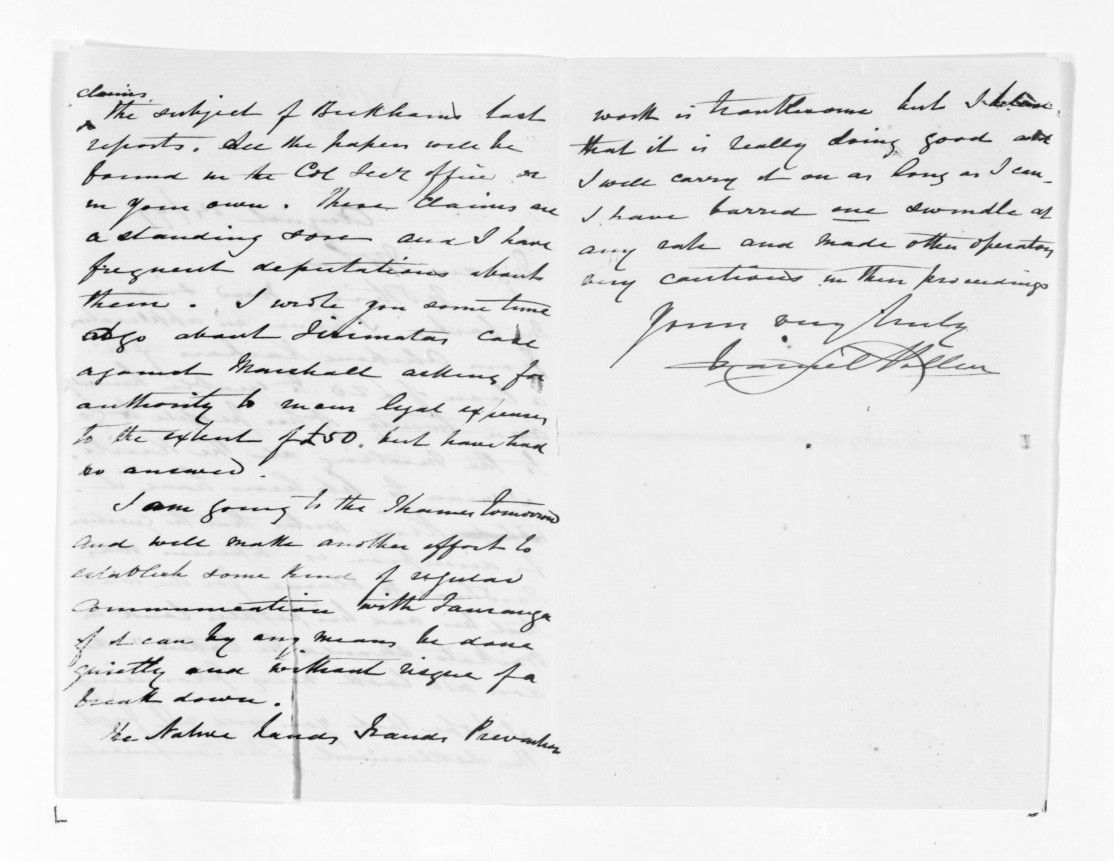 claims
the subject of Beckham's last
reports. See the papers will be
found in the Col Secy office or
in your own. These claims are
a standing sore and I have
frequent deputations about
them. I wrote you some time
ago about Tirimatas case
against Marshall asking for
authority to incur legal expenses
to the extent of £50. but have had
no answer.
I am going to the Thames tomorrow
and will make another effort to
establish some kind of regular
communication with Tauranga
if it can by any means be done
quietly and without risque of a
break down.
The Native Lands Frauds Prevention
work is troublesome but I believe
that it is really doing good and
I will carry it on as long as I can.
I have barred one swindle at
any rate and made other operators
very cautious in their proceedings
Yours very truly
Daniel Pollen